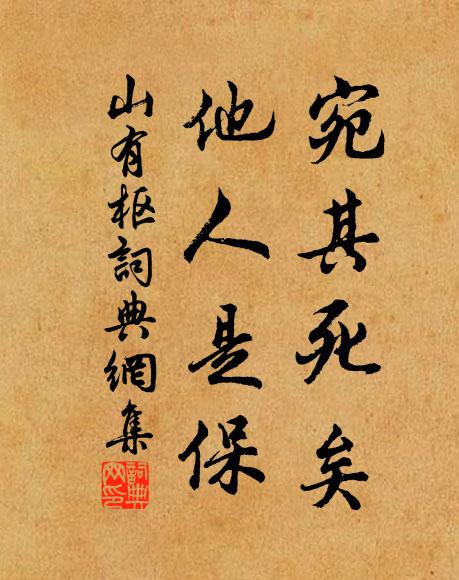 宛其死矣
他人是保
山有枢詞典網集
詞典
网印